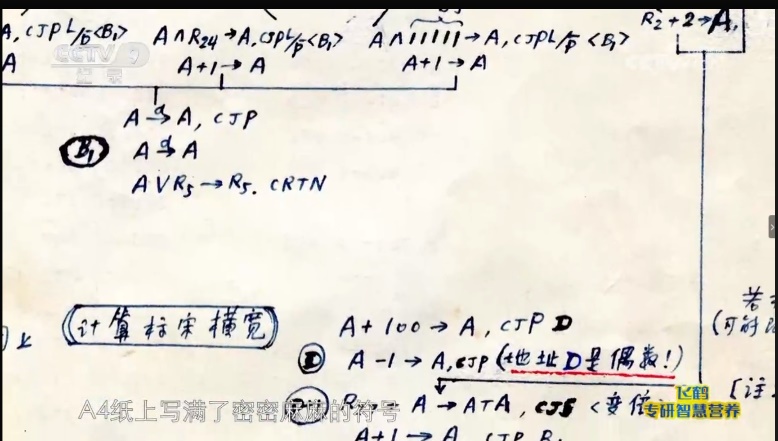 R₂+2→A,
A, CJP L/P̄ <B₁> A∧R₂₄→A, CJP L/P̄ <B₁> A∧111111→A, CJP L/P̄ <B₁>
A A+1→A A+1→A
CCTV 9
纪录
A→A, CJP
B₁ A→A
A∨R₅→R₅. CRTN
计算标宋横宽
A+100→A, CJP D
D A-1→A, CJP (地址D是偶数!)
A→A, CJS <变位
A+1→A CJP B
若
[注
A4纸上写满了密密麻麻的符号
飞鹤
专研智慧营养